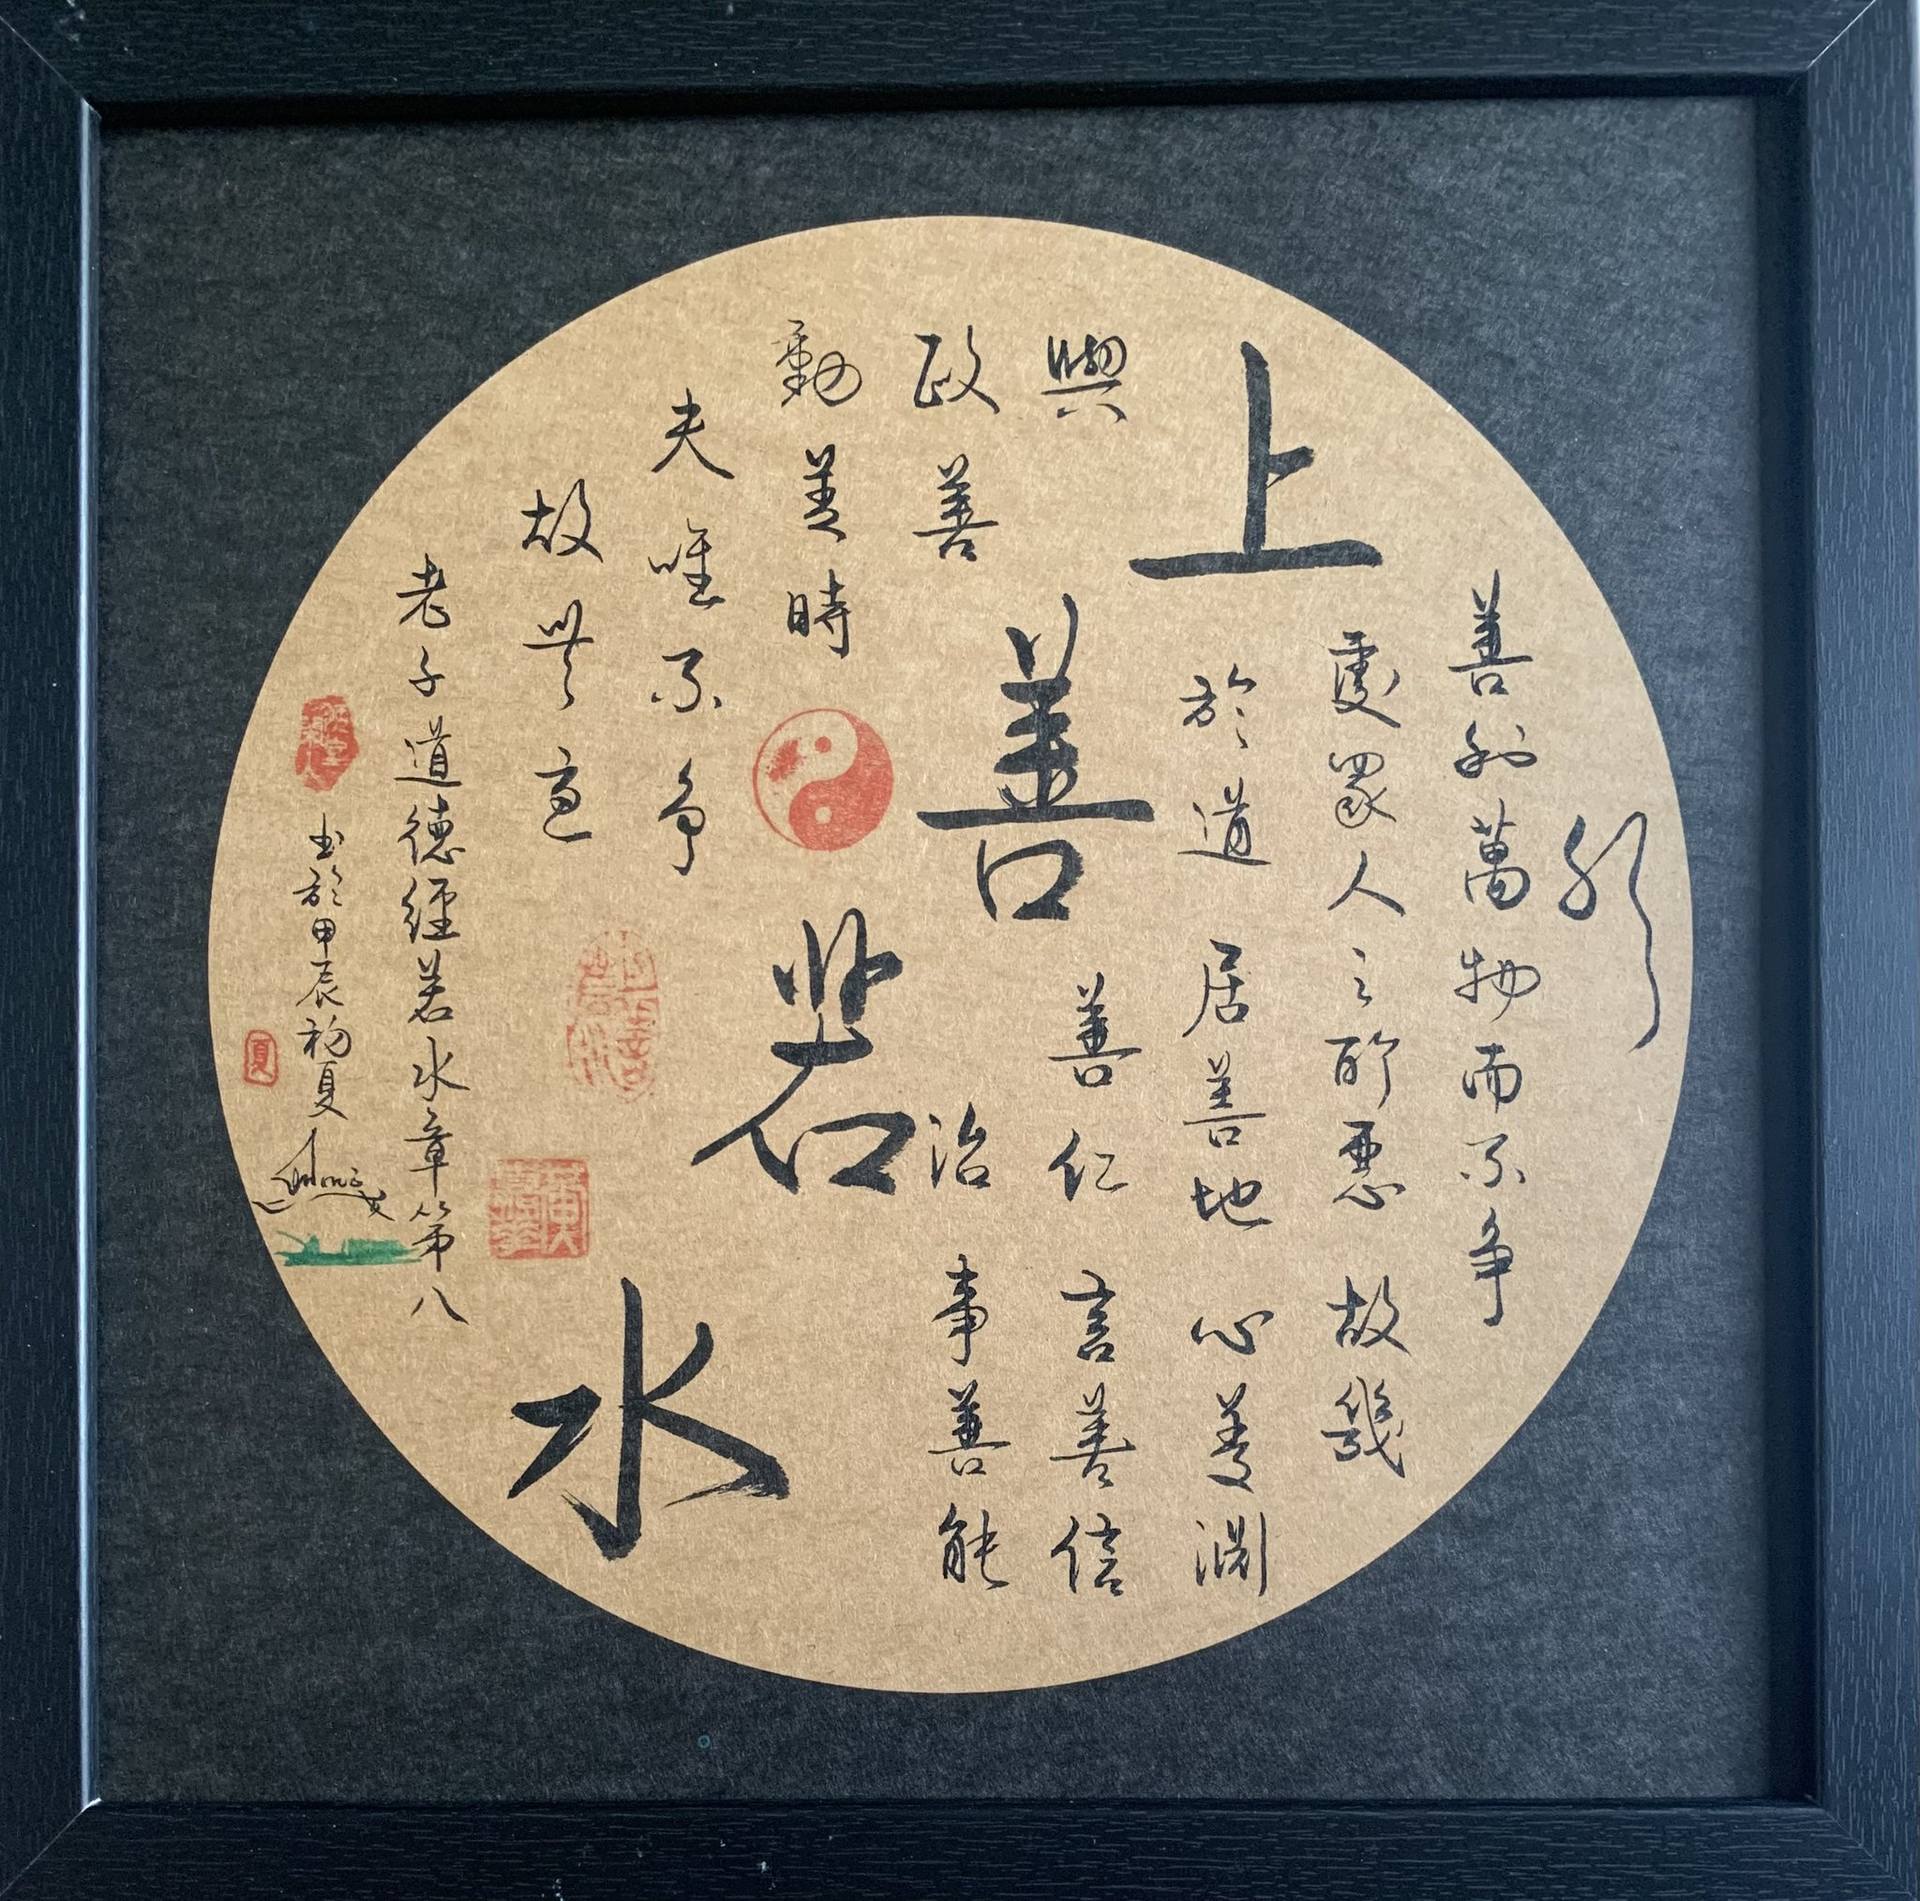 上善若水
水
善利萬物而不争
處眾人之所惡 故幾
於道 居善地 心善淵
與 善仁 言善信
政善 治 事善能
動善時
夫唯不争
故無尤
老子道德經若水章第八
书於甲辰初夏
夏